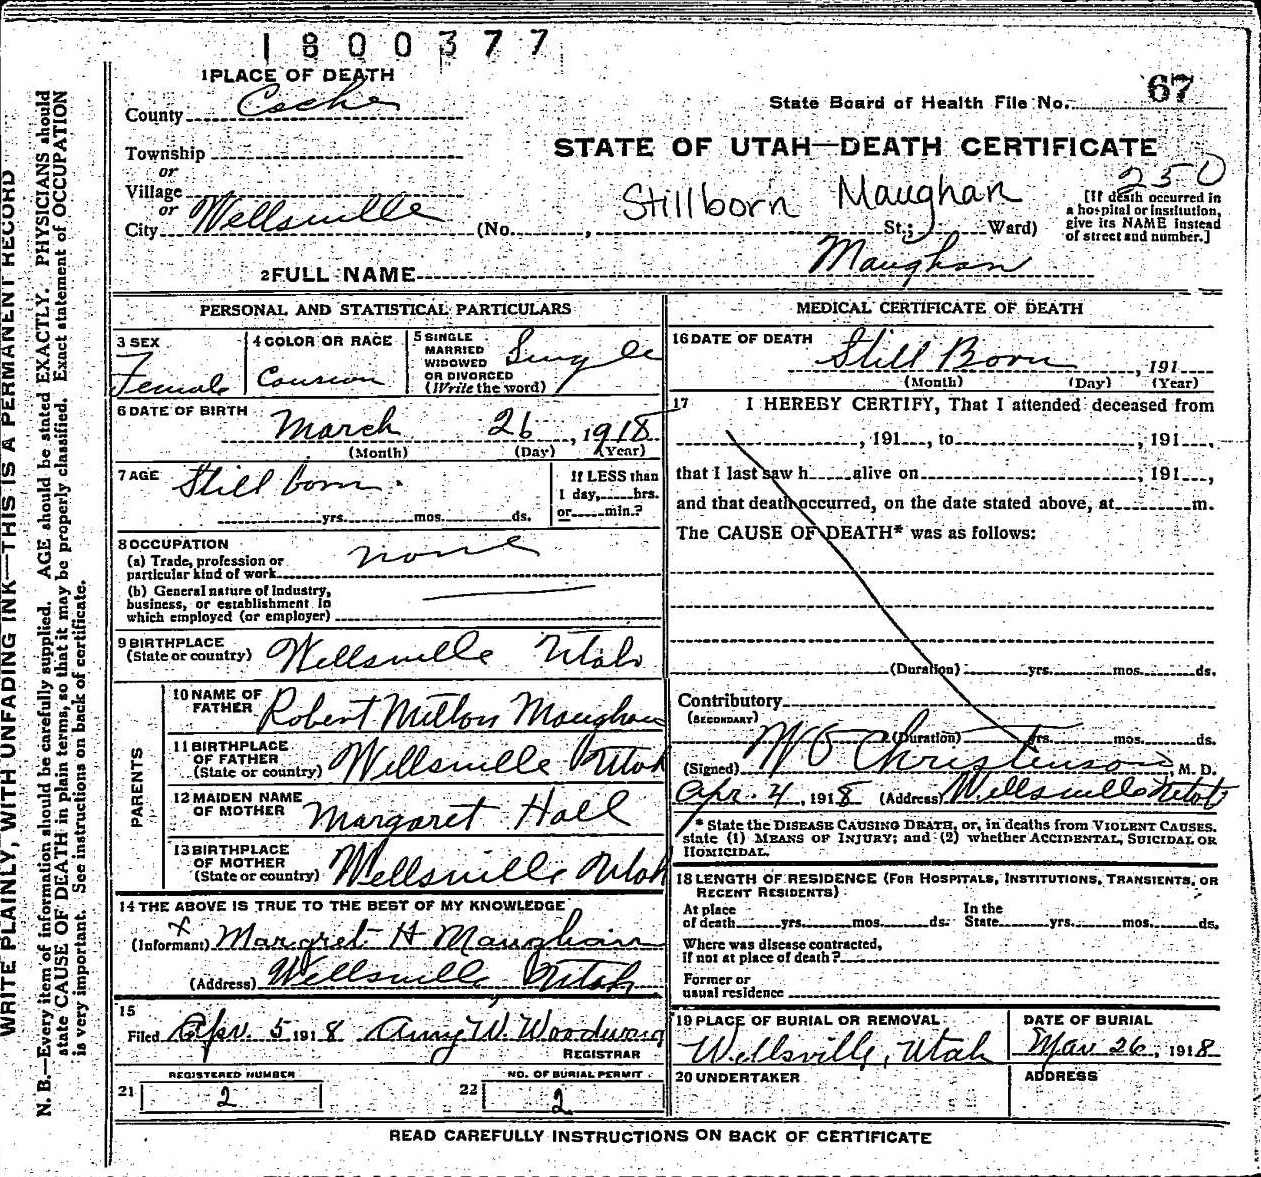 1800377
1 PLACE OF DEATH
County Cache
State Board of Health File No. 67
Township
or
Village
or
City Wellsville
STATE OF UTAH—DEATH CERTIFICATE
250
Stillborn Maughan
(No. , St.; Ward)
[If death occurred in
a hospital or institution,
give its NAME instead
of street and number.]
2 FULL NAME Maughan
PERSONAL AND STATISTICAL PARTICULARS
3 SEX
Female
4 COLOR OR RACE
5 SINGLE
MARRIED
WIDOWED
OR DIVORCED
(Write the word)
Single
6 DATE OF BIRTH
March 26, 1918
(Month) (Day) (Year)
7 AGE Still born.
yrs. mos. ds.
If LESS than
1 day, hrs.
or min.?
8 OCCUPATION
(a) Trade, profession or
particular kind of work none
(b) General nature of Industry,
business, or establishment in
which employed (or employer)
9 BIRTHPLACE
(State or country) Wellsville Utah
PARENTS
10 NAME OF
FATHER Robert Milton Maughan
11 BIRTHPLACE
OF FATHER
(State or country) Wellsville Utah
12 MAIDEN NAME
OF MOTHER Margaret Hall
13 BIRTHPLACE
OF MOTHER
(State or country) Wellsville Utah
14 THE ABOVE IS TRUE TO THE BEST OF MY KNOWLEDGE
x
(Informant) Margret H Maughan
(Address) Wellsville Utah
15
Filed Apr. 5 1918 Amy W. Woodward
REGISTRAR
REGISTERED NUMBER
21 2
NO. OF BURIAL PERMIT
22 2
MEDICAL CERTIFICATE OF DEATH
16 DATE OF DEATH
Still Born, 191
(Month) (Day) (Year)
17 I HEREBY CERTIFY, That I attended deceased from
, 191 , to , 191 ,
that I last saw h alive on , 191 ,
and that death occurred, on the date stated above, at m.
The CAUSE OF DEATH* was as follows:
(Duration) yrs. mos. ds.
Contributory
(SECONDARY)
(Duration) yrs. mos. ds.
(Signed) Christenson, M. D.
Apr. 4, 1918 (Address) Wellsville Utah
* State the DISEASE CAUSING DEATH, or, in deaths from VIOLENT CAUSES,
state (1) MEANS OF INJURY; and (2) whether ACCIDENTAL, SUICIDAL OR
HOMICIDAL.
18 LENGTH OF RESIDENCE (FOR HOSPITALS, INSTITUTIONS, TRANSIENTS, OR
RECENT RESIDENTS)
At place
of death yrs. mos. ds.
In the
State yrs. mos. ds.
Where was disease contracted,
if not at place of death?
Former or
usual residence
19 PLACE OF BURIAL OR REMOVAL
Wellsville, Utah
DATE OF BURIAL
Mar 26, 1918
20 UNDERTAKER
ADDRESS
READ CAREFULLY INSTRUCTIONS ON BACK OF CERTIFICATE
WRITE PLAINLY, WITH UNFADING INK—THIS IS A PERMANENT RECORD
N. B.—Every item of information should be carefully supplied. AGE should be stated EXACTLY. PHYSICIANS should
state CAUSE OF DEATH in plain terms, so that it may be properly classified. Exact statement of OCCUPATION
is very important. See instructions on back of certificate.